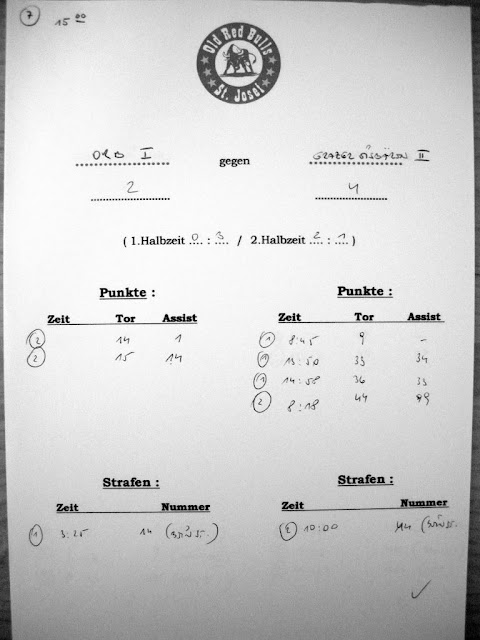 7 15 00
Old Red Bulls
St. Josef
ORB I gegen GRAZER EISBÄREN II
2 4
( 1.Halbzeit 0 : 3 / 2.Halbzeit 2 : 1 )
Punkte : Punkte :
Zeit Tor Assist Zeit Tor Assist
2 14 1 1 8:45 9 -
2 15 14 1 13:50 33 34
1 14:58 36 33
2 8:18 44 99
Strafen : Strafen :
Zeit Nummer Zeit Nummer
1 3:25 14 2 10:00 44